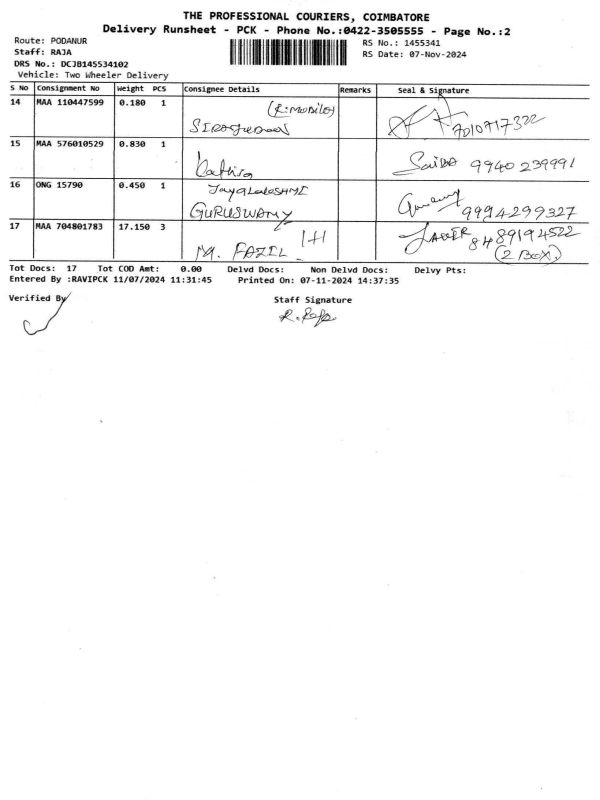 THE PROFESSIONAL COURIERS, COIMBATORE
Delivery Runsheet - PCK - Phone No.:0422-3505555 - Page No.:2
Route: PODANUR
RS No.: 1455341
Staff: RAJA
RS Date: 07-Nov-2024
DRS No.: DCJB145534102
Vehicle: Two Wheeler Delivery
S No Consignment No Weight PCS Consignee Details Remarks Seal & Signature
14 MAA 110447599 0.180 1 (R:MOBILE) 7010717322
15 MAA 576010529 0.830 1 Saida 9940239991
16 ONG 15790 0.450 1 JAYALAKSHMI
GURUSWAMY 9994299327
17 MAA 704801783 17.150 3 M. FAZIL 1+1 8489194522
(2 BOX)
Tot Docs: 17 Tot COD Amt: 0.00 Delvd Docs: Non Delvd Docs: Delvy Pts:
Entered By :RAVIPCK 11/07/2024 11:31:45 Printed On: 07-11-2024 14:37:35
Verified By Staff Signature
R. Raja